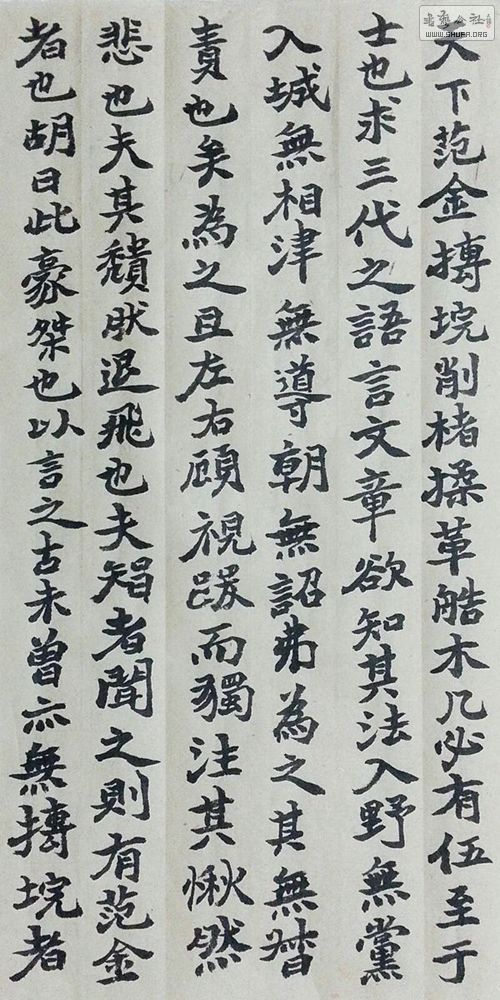 天下范金搏垸削楮揉革皓木几必有伍至于
士也求三代之語言文章欲知其法入野無黨
入城無相津無導朝無詔弗為之其無督
責也矣為之且左右顧視踆而獨注其愀然
悲也夫其頹肰退飛也夫智者聞之則有范金
者也胡曰此豪桀也以言之古未曾亦無摶垸者
書藝公社
WWW.SHUFA.ORG